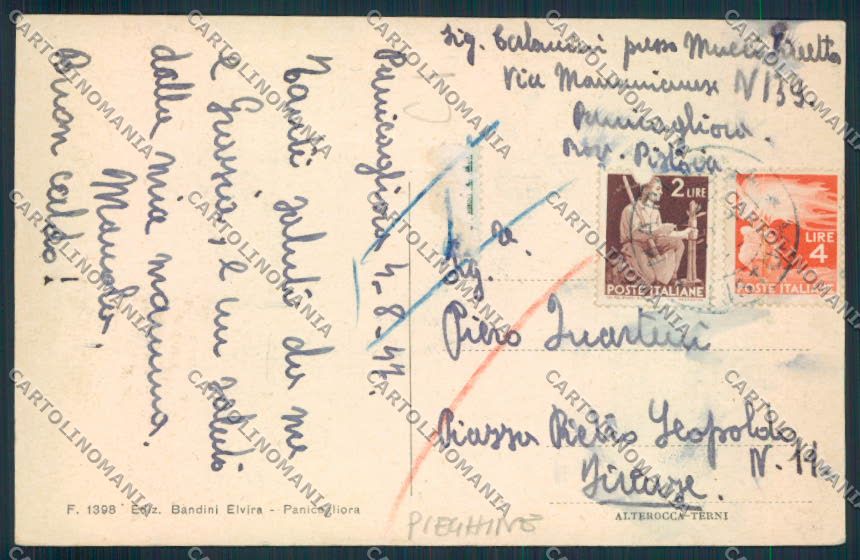 Panicagliora 4-8-47.
Tanti saluti da me
e Grazia, e un saluto
dalla mia mamma.
Manola.
Buon caldo!
Sig. presso
Via N 159.
Panicagliora.
Prov. Pistoia
2 LIRE
POSTE ITALIANE
LIRE
4
POSTE ITALIANE
Sig. a.
Piero
Piazza Pietro Leopoldo
N. 14.
Firenze.
F. 1398 Ediz. Bandini Elvira - Panicagliora
PIEGHINE
ALTEROCCA-TERNI
CARTOLINOMANIA